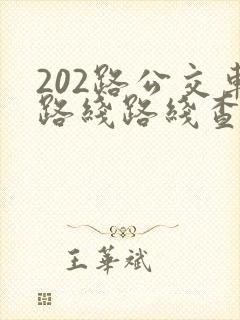 202路公交車
路綫路綫查
王華斌